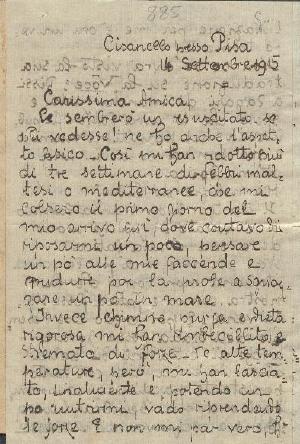 885
Cisanello presso Pisa
14 Settembre 1915
Carissima Amica
Le sembrerò un risuscitato se
mi vedesse! ne ho anche l'aspet,
to fisico. Così mi han ridotto più
di tre settimane di febbri mal,
tesi o mediterranee, che mi
colsero il primo giorno del
mio arrivo qui dove contavo di
riposarmi un poco, pensare
un po' alle mie faccende e
condurre poi la prole a sguaz,
zare un po' in mare.
Invece chinino, purga e dieta
rigorosa mi han rimbecillito e
stremato di forze. Le alte tem,
perature, però, mi han lascia,
to finalmente e potendo un
po' nutrirmi, vado riprendendo
le forze. E non mi par vero di